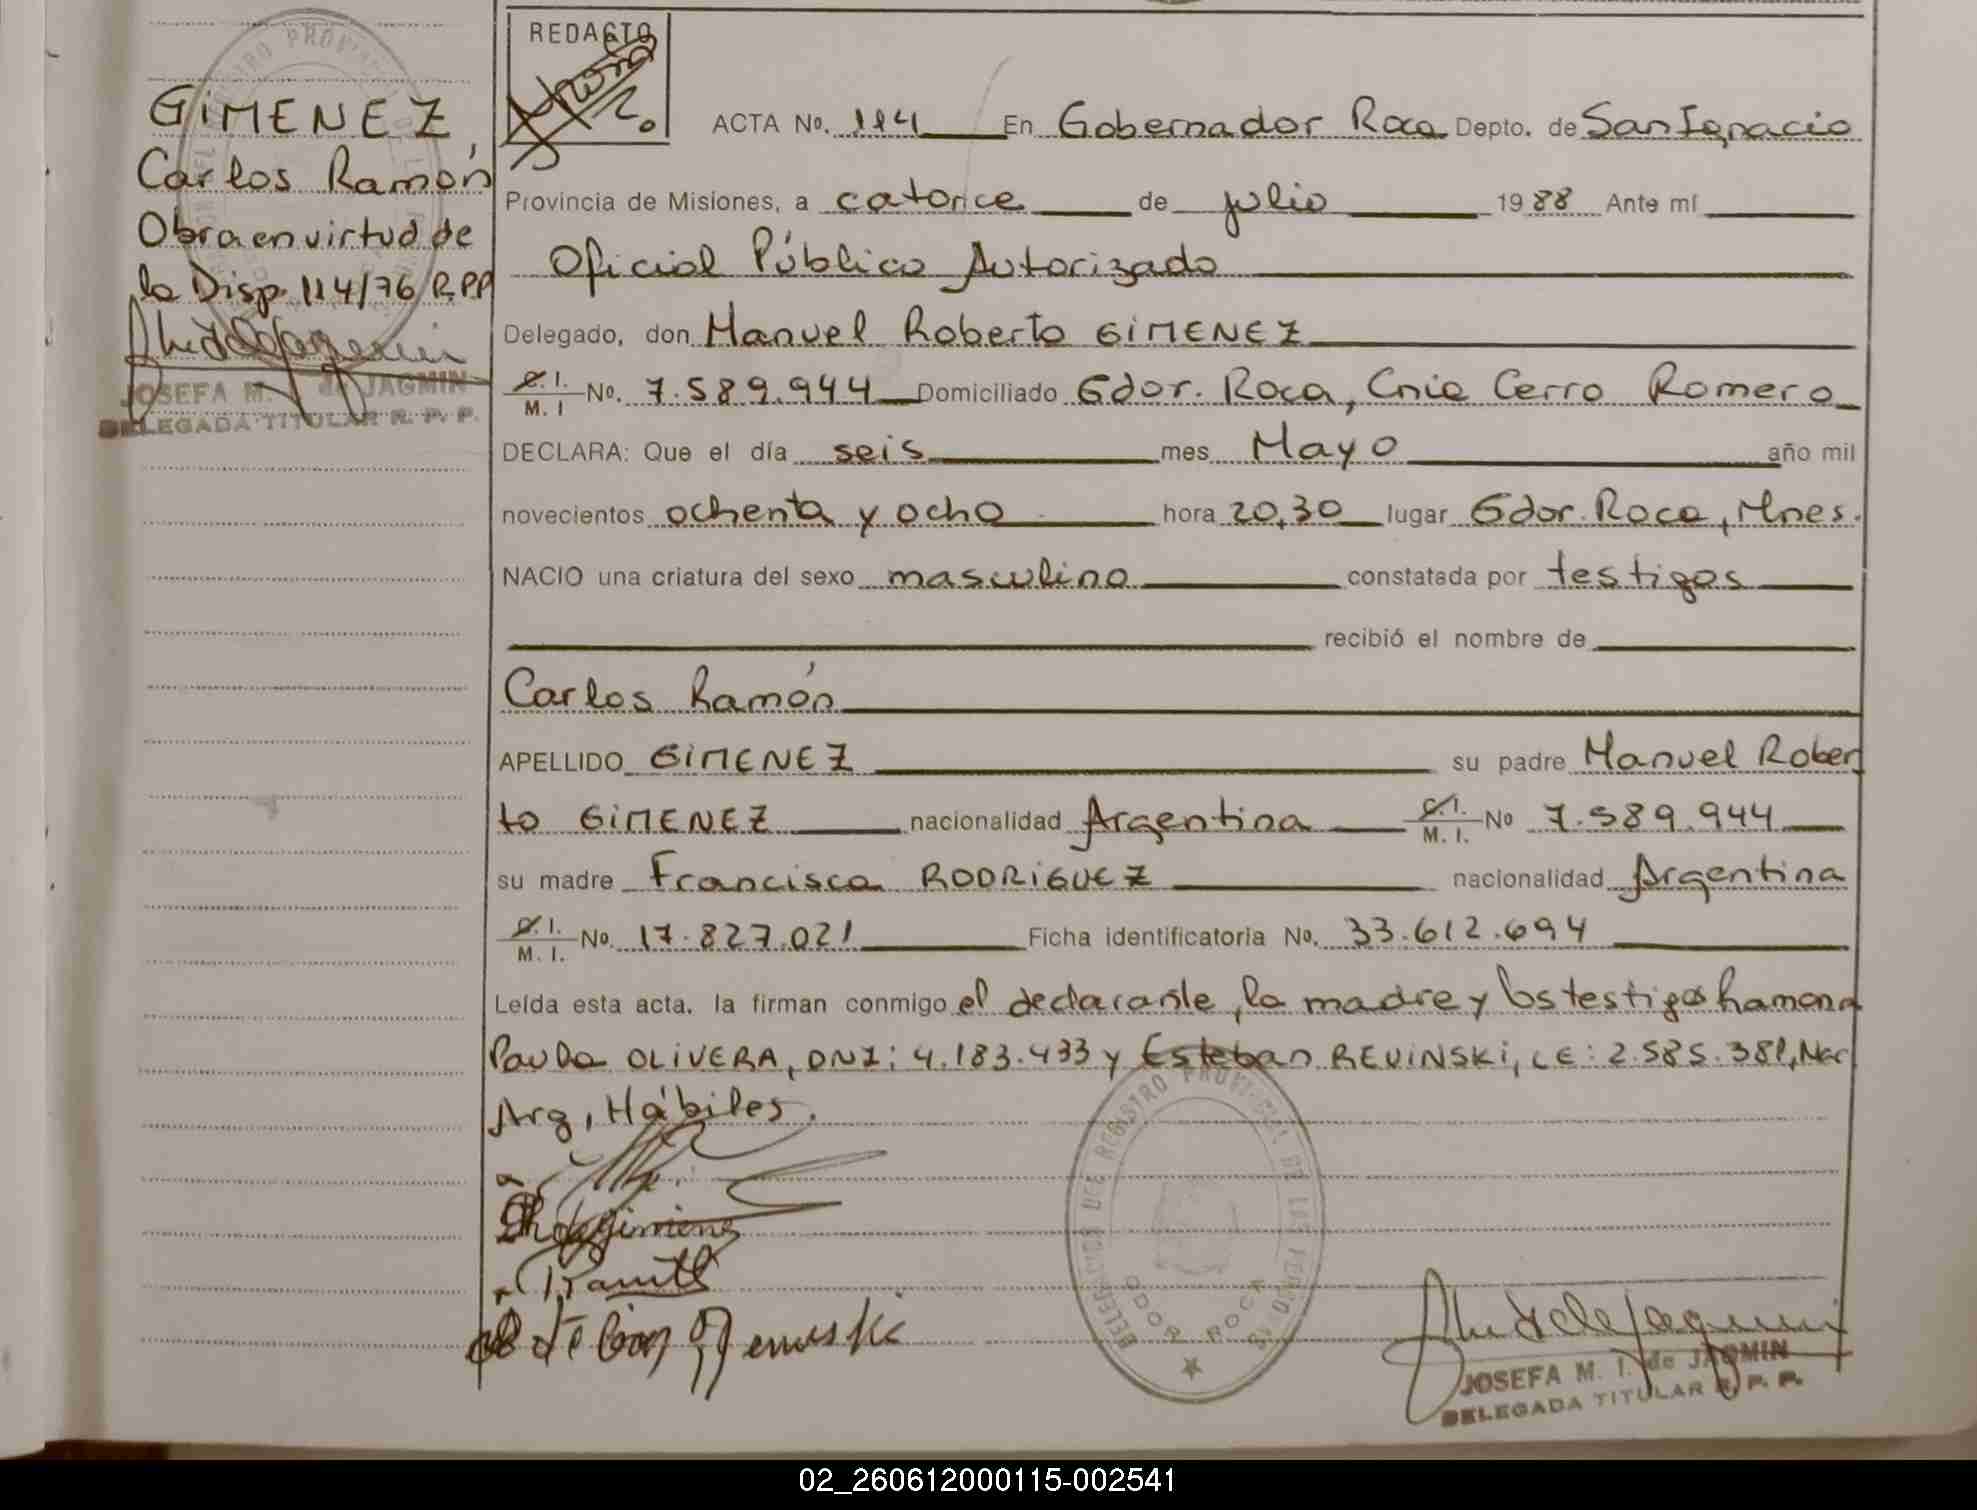 GIMENEZ,
Carlos Ramón
Obra en virtud de
la Disp. 114/76 R.P.P
JOSEFA M. de JAGMIN
DELEGADA TITULAR R. P. P.
REDACTO
ACTA No. 114 En Gobernador Roca Depto. de San Ignacio
Provincia de Misiones, a catorce de julio 1988 Ante mí
Oficial Público Autorizado
Delegado, don Manuel Roberto GIMENEZ
C. I. M. I No. 7.589.944 Domiciliado Gdor. Roca, Cnia Cerro Romero
DECLARA: Que el día seis mes Mayo año mil
novecientos ochenta y ocho hora 20,30 lugar Gdor. Roca, Mnes.
NACIO una criatura del sexo masculino constatada por testigos
recibió el nombre de
Carlos Ramón
APELLIDO GIMENEZ su padre Manuel Rober
to GIMENEZ nacionalidad Argentina C.I. M. I. No 7.589.944
su madre Francisca RODRIGUEZ nacionalidad Argentina
C. I. M. I. No. 17.827.021 Ficha identificatoria No. 33.612.694
Leída esta acta, la firman conmigo el declarante, la madre y los testigos Ramona
Paula OLIVERA, DNI: 4.183.433 y Esteban REVINSKI, LE: 2.585.381, Nac
Arg, Hábiles.
DELEGACION DEL REGISTRO PROVINCIAL DE LAS PERSONAS
GDOR ROCA
JOSEFA M. I. de JAGMIN
DELEGADA TITULAR R. P. P.
02_260612000115-002541